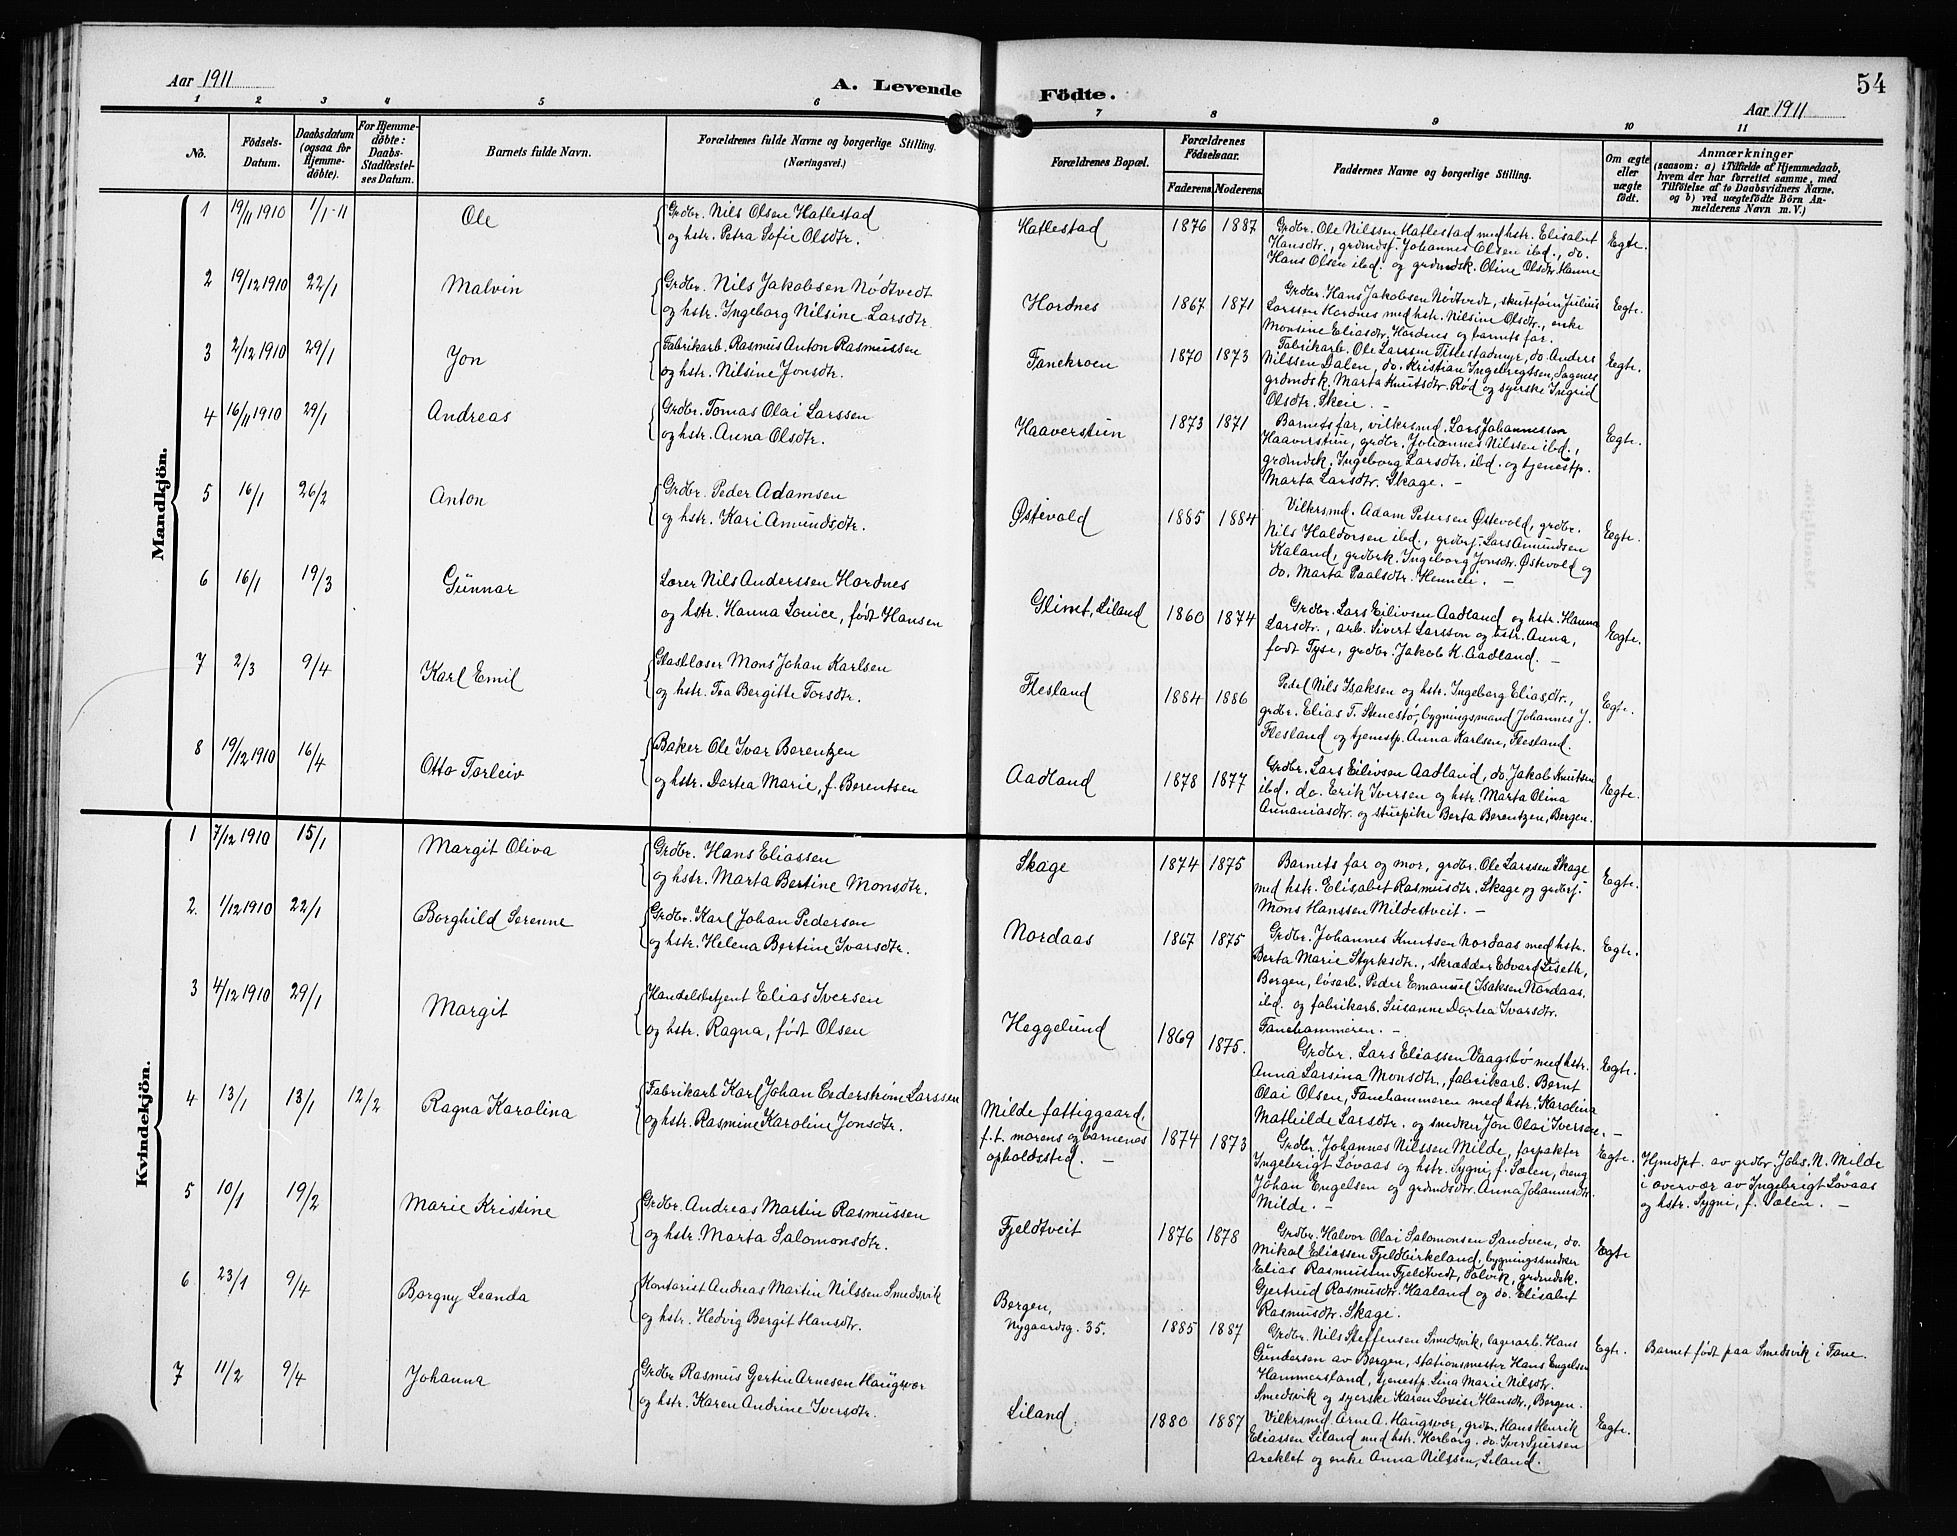 Aar 1911
A. Levende
Födte.
54
Aar 1911
1 2 3 4 5 6 7 8 9 10 11
No.
Födsels-
Datum.
Daabsdatum
(ogsaa for
Hjemme-
döbte).
For Hjemme-
döbte:
Daabs-
Stadfæstel-
ses Datum.
Barnets fulde Navn.
Forældrenes fulde Navne og borgerlige Stilling.
(Næringsvei.)
Forældrenes Bopæl.
Forældrenes
Födselsaar.
Faderens. Moderens.
Faddernes Navne og borgerlige Stilling.
Om ægte
eller
uægte
födt.
Anmærkninger
(saasom: a) i Tilfælde af Hjemmedaab,
hvem der har forrettet samme, med
Tilföielse af to Daabsvidners Navne.
og b) ved uægtefödte Börn An-
melderens Navn m. V.)
Mandkjön.
1 19/11 1910 1/1-11 Ole
Grdbr. Nils Olsen Hatlestad
og hstr. Petra Sofie Olsdtr.
Hatlestad 1876 1887
Grdbr. Ole Nilssen Hatlestad med hstr. Elisabet
Hansdtr., grdmdsf. Johannes Olsen ibd., do.
Hans Olsen ibd. og grdmdsk. Oline Olsdtr. Hanne
Egte.
2 19/12 1910 22/1 Malvin
Grdbr. Nils Jakobsen Nødtvedt
og hstr. Ingeborg Nilsine Larsdtr.
Hordnes 1867 1871
Grdbr. Hans Jakobsen Nødtvedt, skutefører Julius
Larssen Hordnes med hstr. Nilsine Olsdtr., enke
Monsine Eliasdtr. Hordnes og barnets far.
Egte.
3 2/12 1910 29/1 Jon
Fabrikarb. Rasmus Anton Rasmussen
og hstr. Nilsine Jonsdtr.
Fanekroen 1870 1873
Fabrikarb. Ole Larssen Titlestadmyr, do. Anders
Nilssen Dalen, do. Kristian Ingebregtsen, Sagenes
grdmdsk. Marta Knutsdtr. Rød og syerske Ingrid
Olsdtr. Skeie. –
Egte.
4 16/11 1910 29/1 Andreas
Grdbr. Tomas Olai Larssen
og hstr. Anna Olsdtr.
Haaverstun 1873 1871
Barnets far, vilkrsmd. Lars Johannesson
Haaverstun, grdbr. Johannes Nilssen ibd.,
grdmdsk. Ingeborg Larsdtr. ibd. og tjenestp.
Marta Larsdtr. Skage. –
Egte.
5 16/1 26/2 Anton
Grdbr. Peder Adamsen
og hstr. Kari Amundsdtr.
Østevold 1885 1884
Vilkrsmd. Adam Petersen Østevold, grdbr.
Nils Haldorsen ibd., grdbrj. Lars Amundsen
Kaland, grdbrk. Ingeborg Jonsdtr. Østevold og
do. Marta Paalsdtr. Hennele. –
Egte.
6 16/1 19/3 Gunnar
Lærer Nils Anderssen Hordnes
og hstr. Hanna Lovice, født Hansen
Glimt, Liland 1860 1874
Grdbr. Lars Eilivsen Aadland og hstr. Hanna
Larsdtr., arb. Sivert Larsson og hstr. Anna,
født Tyse, grdbr. Jakob K. Aadland. –
Egte.
7 2/3 9/4 Karl Emil
Glasblæser Mons Johan Karlsen
og hstr. Tea Bergitte Torsdtr.
Flesland 1884 1886
Pedel Nils Isaksen og hstr. Ingeborg Eliasdtr.,
grdbr. Elias T. Stenestø, bygningsmand Johannes J.
Flesland og tjenestp. Anna Karlsen, Flesland.
Egte.
8 19/12 1910 16/4 Otto Torleiv
Baker Ole Ivar Berentzen
og hstr. Dortea Marie, f. Berentsen
Aadland 1878 1877
Grdbr. Lars Eilivsen Aadland, do. Jakob Knutsen
ibd. do. Erik Iversen og hstr. Marta Olina
Annaniasdtr. og stuepike Berta Berentzen, Bergen.
Egte.
Kvindekjön.
1 7/12 1910 15/1 Margit Oliva
Grdbr. Hans Eliassen
og hstr. Marta Bertine Monsdtr.
Skage 1874 1875
Barnets far og mor, grdbr. Ole Larssen Skage
med hstr. Elisabet Rasmusdtr. Skage og grdbrj.
Mons Hanssen Mildestveit. –
Egte.
2. 1/12 1910 22/1 Borghild Serenne
Grdbr. Karl Johan Pedersen
og hstr. Helena Bertine Ivarsdtr.
Nordaas 1867 1875
Grdbr. Johannes Knutsen Nordaas med hstr.
Berta Marie Styrksdtr., skrædder Edvard Liseth,
Bergen, løsarb. Peder Emanuel Isaksen Nordaas,
ibd. og fabrikarb. Susanne Dortea Ivarsdtr.
Fanehammeren. –
Egte.
3 4/12 1910 29/1 Margit
Handelsbetjent Elias Iversen
og hstr. Ragna, født Olsen
Heggelund 1869 1875.
Grdbr. Lars Eliassen Vaagsbø med hstr.
Anna Larsina Monsdtr., fabrikarb. Bernt
Olai Olsen, Fanehammeren med hstr. Karolina
Mathilde Larsdtr. og smedker Jon Olai Iversen. –
Egte.
4 13/1 13/1 12/2 Ragna Karolina
Fabrikarb Karl Johan Cederstrøm Larssen
og hstr. Rasmine Karoline Jonsdtr.
Milde fattiggaard,
f.t. morens og barnenes
opholdssted. –
1874 1873
Grdbr. Johannes Nilssen Milde, forpakter
Ingebrigt Løvaas og hstr. Sygni, f. Sælen, dreng
Johan Engelsen og grdmdsdtr. Anna Johannesdtr.
Milde. –
Egte.
Hjmdpt. av grdbr. Johs. N. Milde
i overvær av Ingebrigt Løvaas
og hstr. Sygni, f. Sælen. –
5 10/1 19/2 Marie Kristine
Grdbr. Andreas Martin Rasmussen
og hstr. Marta Salomonsdtr.
Fjeldtveit 1876 1878
Grdbr. Halvor Olai Salomonsen Sandven, do.
Mikal Eliassen Fjeldbirkeland, bygningssnedker
Elias Rasmussen Fjeldtvedt, Solvik, grdmdsk.
Gjertrud Rasmusdtr. Haaland og do. Elisabet
Rasmusdtr. Skage.
Egte
6 23/1 9/4 Borgny Leanda
Kontorist Andreas Martin Nilssen Smedsvik
og hstr. Hedvig Bergit Hansdtr.
Bergen,
Nygaardsg. 35. 1885 1887
Grdbr. Nils Steffensen Smedsvik, lagerarb. Hans
Gundersen av Bergen, stationsmester Hans Engelsen
Hammersland, tjenestp. Lina Marie Nilsdtr.
Smedsvik og syerske Karen Lovise Hansdtr., Bergen.
Egte.
Barnet født paa Smedsvik i Fane.
7 11/2 9/4 Johanna
Grdbr Rasmus Gertin Arnesen Haugsvær
og hstr. Karen Andrine Iversdtr.
Liland. 1880 1887
Vilkrsmd Arne A. Haugsvær, grdbr. Hans Henrik
Eliassen Liland med hstr. Herborg. do. Iver Sjursen
Areklet og enke Anna Nilssen, Liland.
Egte.